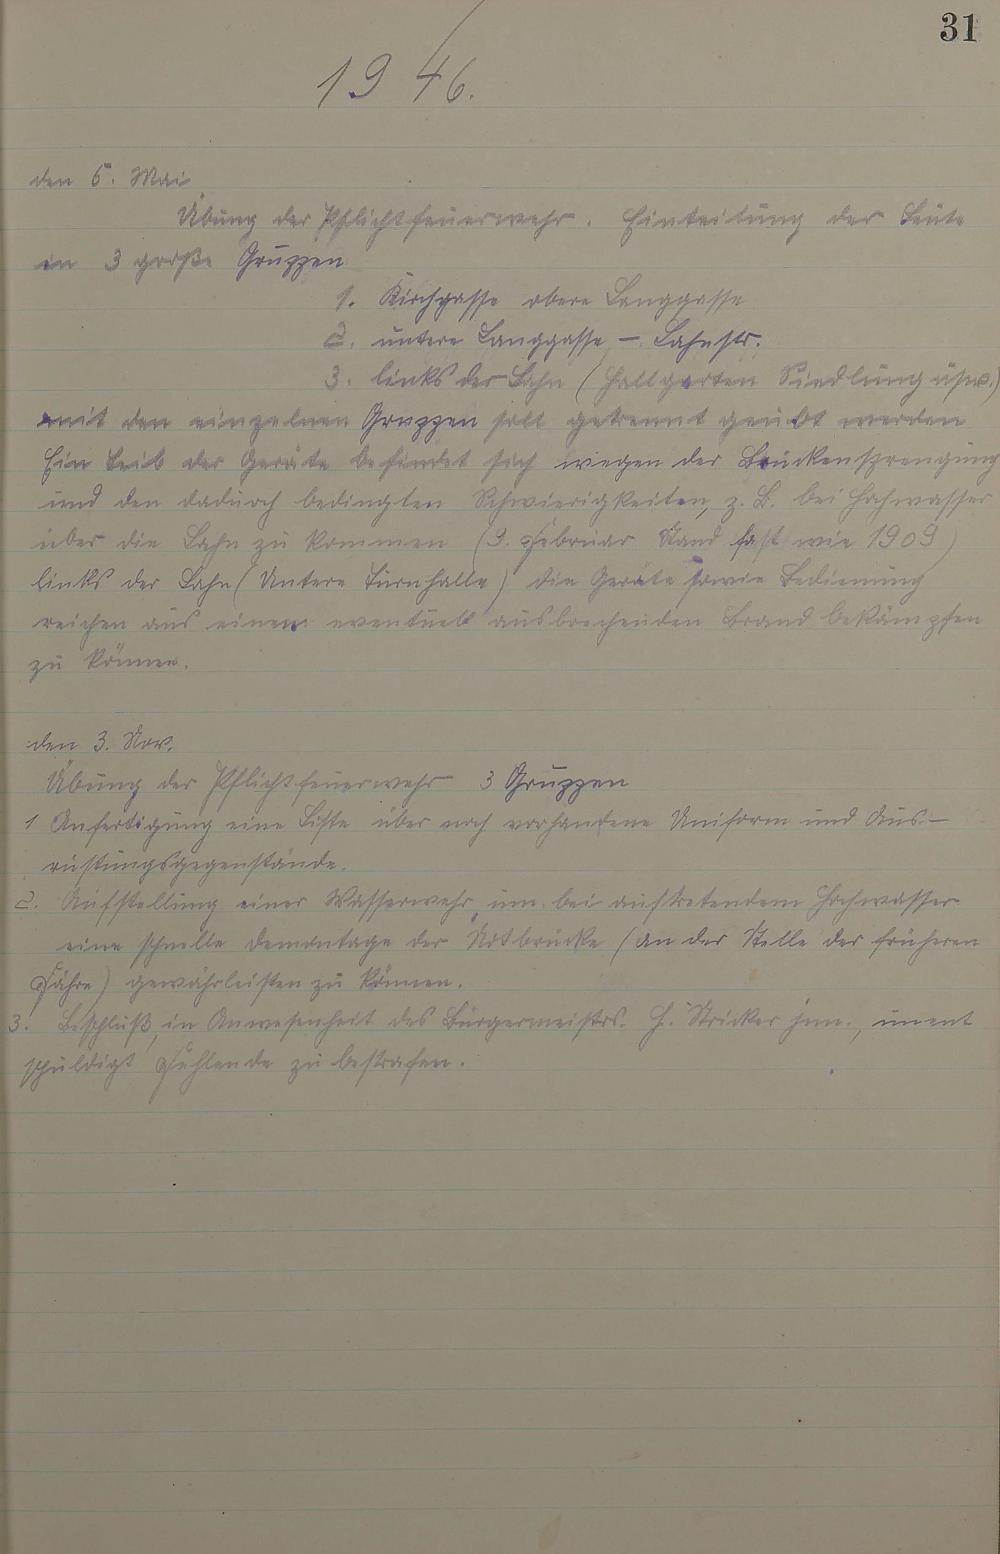 31
1946.
den 5. Mai
Übung der Pflichtfeuerwehr. Einteilung der Leute
in 3 große Gruppen
1. Kirchgasse obere Langgasse
2. untere Langgasse – Lahnstr.
3. links der Lahn (Hallgarten Siedlung usw.)
mit den einzelnen Gruppen soll getrennt geübt werden
Ein Teil der Geräte befindet sich wegen der Brückensprengung
und den dadurch bedingten Schwierigkeiten, z. B. bei Hochwasser
über die Lahn zu kommen (9. Februar Stand fast wie 1909)
links der Lahn (Untere Turnhalle) die Geräte sowie Bedienung
reichen aus einem eventuell ausbrechenden Brand bekämpfen
zu können.
den 3. Nov.
Übung der Pflichtfeuerwehr 3 Gruppen
1 Anfertigung eine Liste über noch vorhandene Uniform und Aus-
rüstungsgegenstände.
2. Aufstellung einer Wasserwehr, um bei auftretendem Hochwasser
eine schnelle Demontage der Notbrücke (an der Stelle der früheren
Fähre) gewährleisten zu können.
3. Beschluß, in Anwesenheit des Bürgermeistrs. H. Stricker jun., unent
schuldigt Fehlende zu bestrafen.